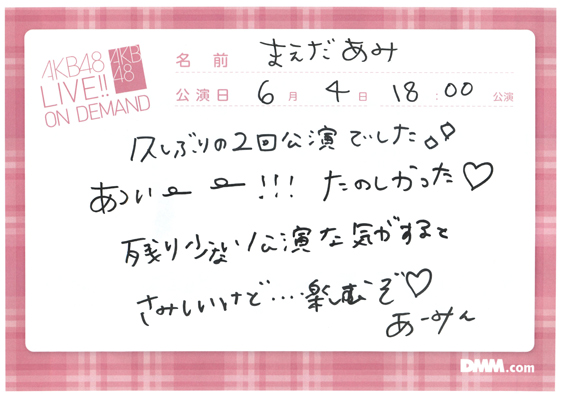 AKB48
LIVE!!
ON DEMAND
AKB
48
名前 まえだあみ
公演日 6月 4日 18:00 公演
久しぶりの2回公演でした
あつい〜〜!!! たのしかった♡
残り少ない公演な気がすると
さみしいけど....楽しむぞ♡
あーみん
DMM.com